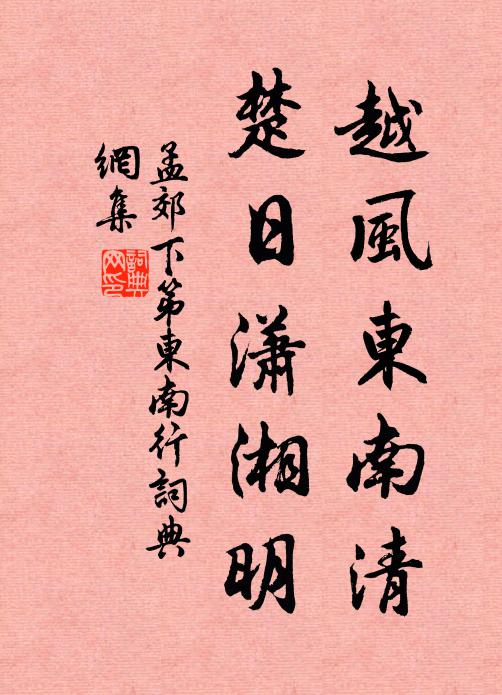 越風東南清
楚日瀟湘明
孟郊下第東南行詞典
網集
詞典网印